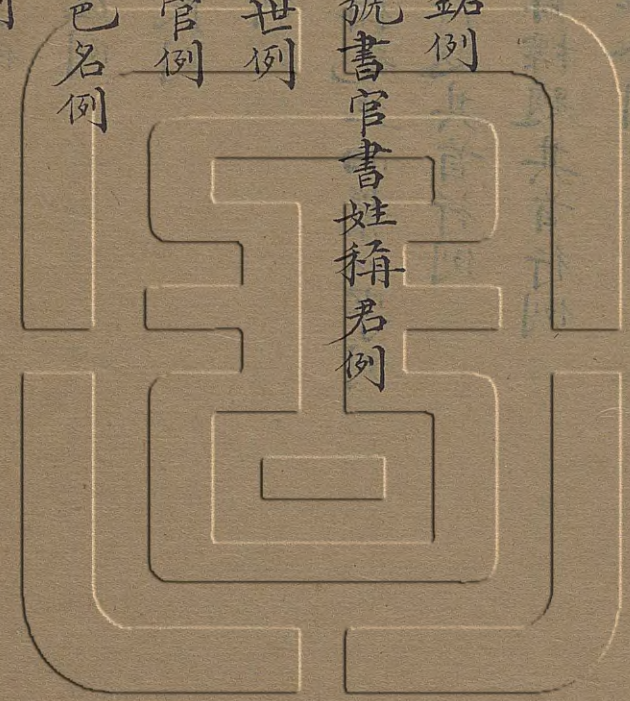 例
號書官書姓稱君例
世例
官例
名例